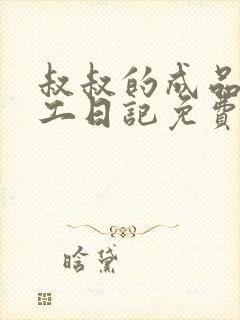 叔叔的成品
工日记免費
晗黛